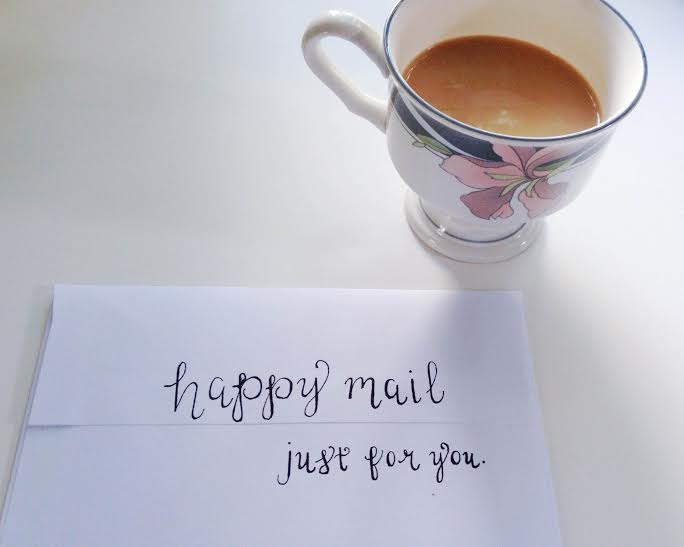 happy mail
just for you.